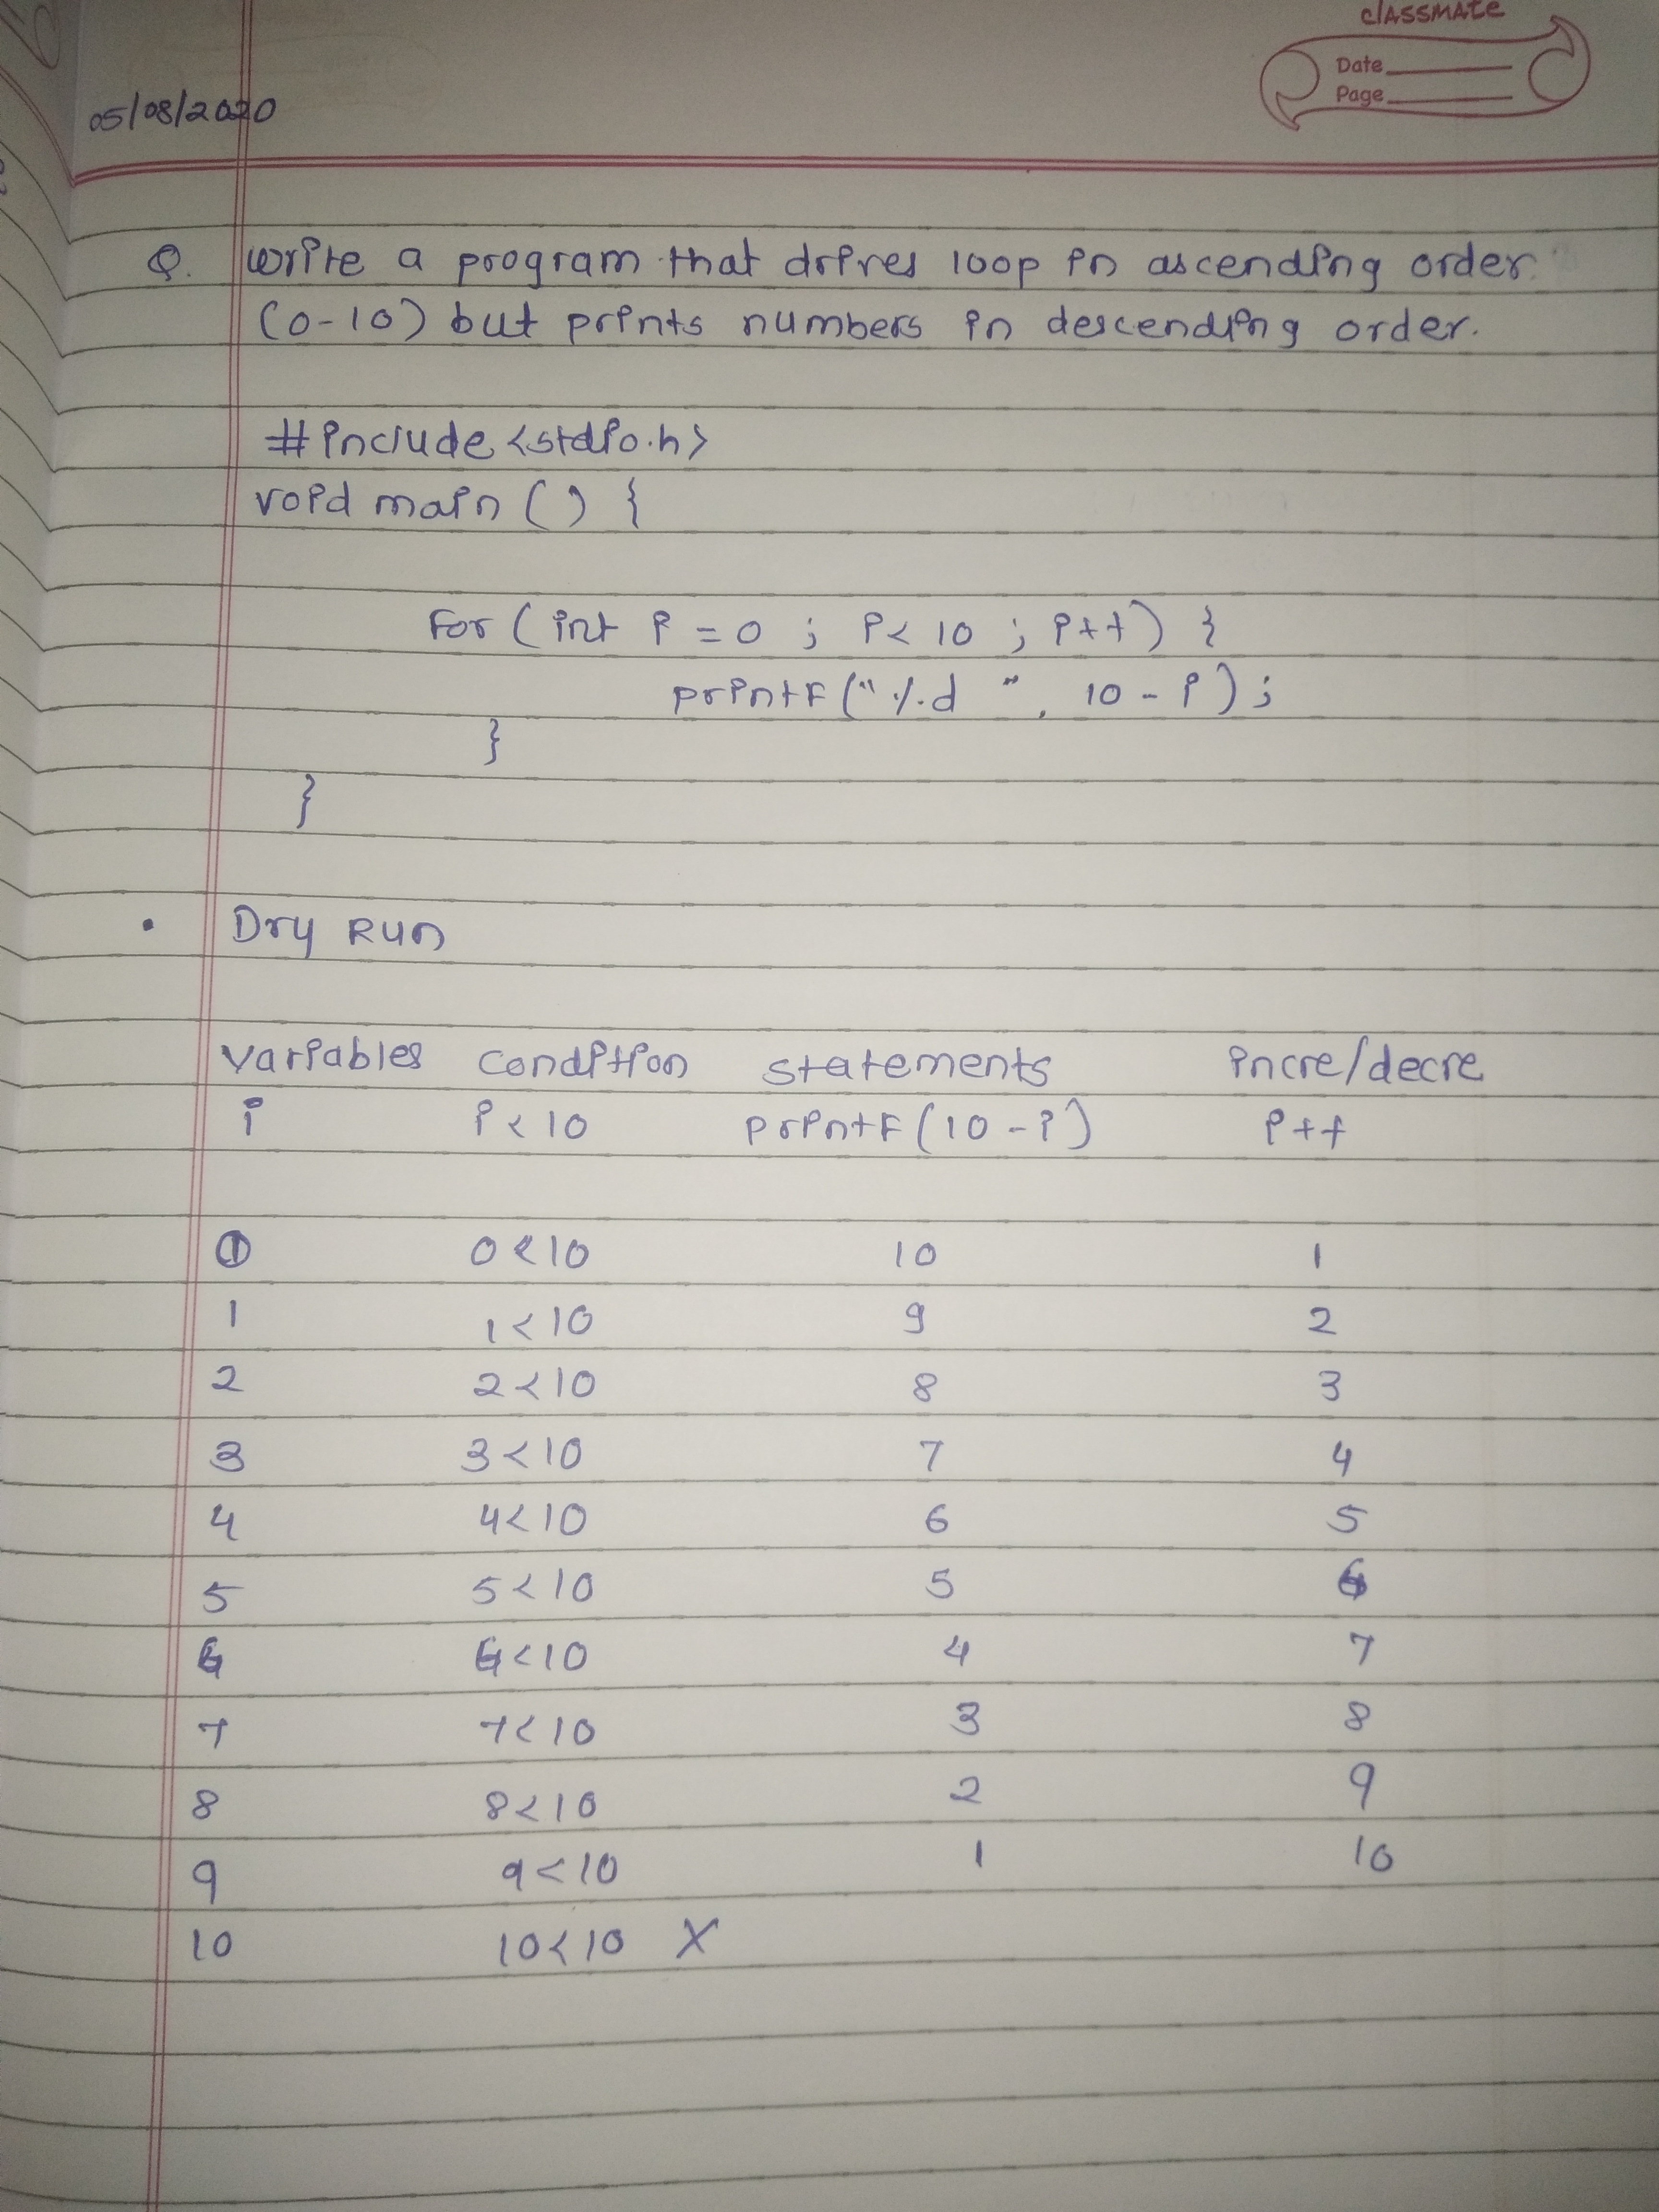 classmate
Date
Page
05/08/2020
Q. Write a program that drives loop in ascending order.
(0-10) but prints numbers in descending order.
#include <stdio.h>
void main () {
for ( int i = 0 ; i < 10 ; i++ ) {
printf (" %d ", 10 - i ) ;
}
}
• Dry Run
variables condition statements incre/decre
i i < 10 printf (10 - i) i++
0 0 < 10 10 1
1 1 < 10 9 2
2 2 < 10 8 3
3 3 < 10 7 4
4 4 < 10 6 5
5 5 < 10 5 6
6 6 < 10 4 7
7 7 < 10 3 8
8 8 < 10 2 9
9 9 < 10 1 10
10 10 < 10 X